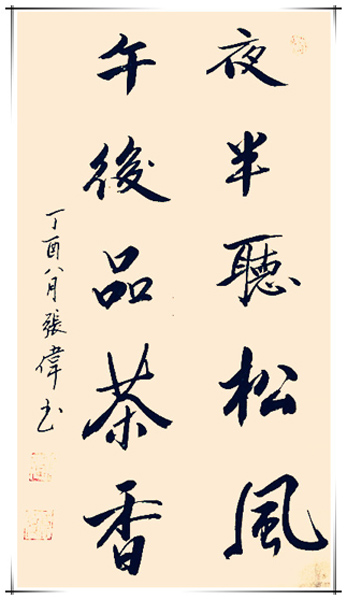 夜半聽松風
午後品茶香
丁酉八月張偉书